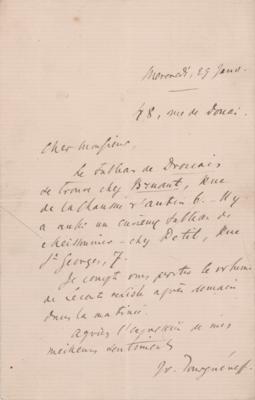 Mercredi, 29 Janv.
48, rue de Douai.
Cher Monsieur,
Le tableau de Drouais
se trouve chez Bruant, Rue
de la Chaussée d'Antin 6. Il y
a aussi un curieux tableau de
chez Petit, Rue
St Georges, 7.
Je compte vous porter le
après demain
dans la matinée.
Agréez l'expression de mes
meilleurs sentiments
Iv. Tourguéneff